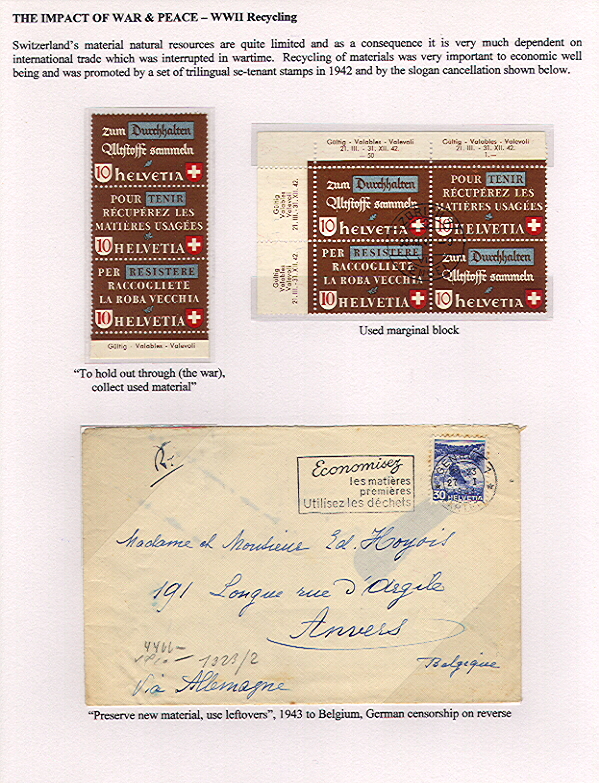 THE IMPACT OF WAR & PEACE – WWII Recycling
Switzerland's material natural resources are quite limited and as a consequence it is very much dependent on
international trade which was interrupted in wartime. Recycling of materials was very important to economic well
being and was promoted by a set of trilingual se-tenant stamps in 1942 and by the slogan cancellation shown below.
Zum Durchhalten
Altstoffe sammeln
10 HELVETIA
POUR TENIR
RÉCUPÉREZ LES
MATIÈRES USAGÉES
10 HELVETIA
PER RESISTERE
RACCOGLIETE
LA ROBA VECCHIA
10 HELVETIA
Gültig - Valables - Valevoli
"To hold out through (the war),
collect used material"
Gültig - Valables - Valevoli
21. III. - 31. XII. 42.
— 50
Gültig - Valables - Valevoli
21. III. - 31. XII. 42.
1.—
Gültig
Valables
Valevoli
21. III. - 31. XII. 42.
Gültig
Valables
Valevoli
21. III. - 31. XII. 42.
Zum Durchhalten
Altstoffe sammeln
10 HELVETIA
POUR TENIR
RÉCUPÉREZ LES
MATIÈRES USAGÉES
10 HELVETIA
PER RESISTERE
RACCOGLIETE
LA ROBA VECCHIA
10 HELVETIA
Zum Durchhalten
Altstoffe sammeln
10 HELVETIA
Used marginal block
Economisez
les matières
premières
Utilisez les déchets
30 HELVETIA
Madame et Monsieur Ed. Hoyois
191 Longue rue d'Argile
Anvers
Belgique
1323/2
Via Allemagne
"Preserve new material, use leftovers", 1943 to Belgium, German censorship on reverse